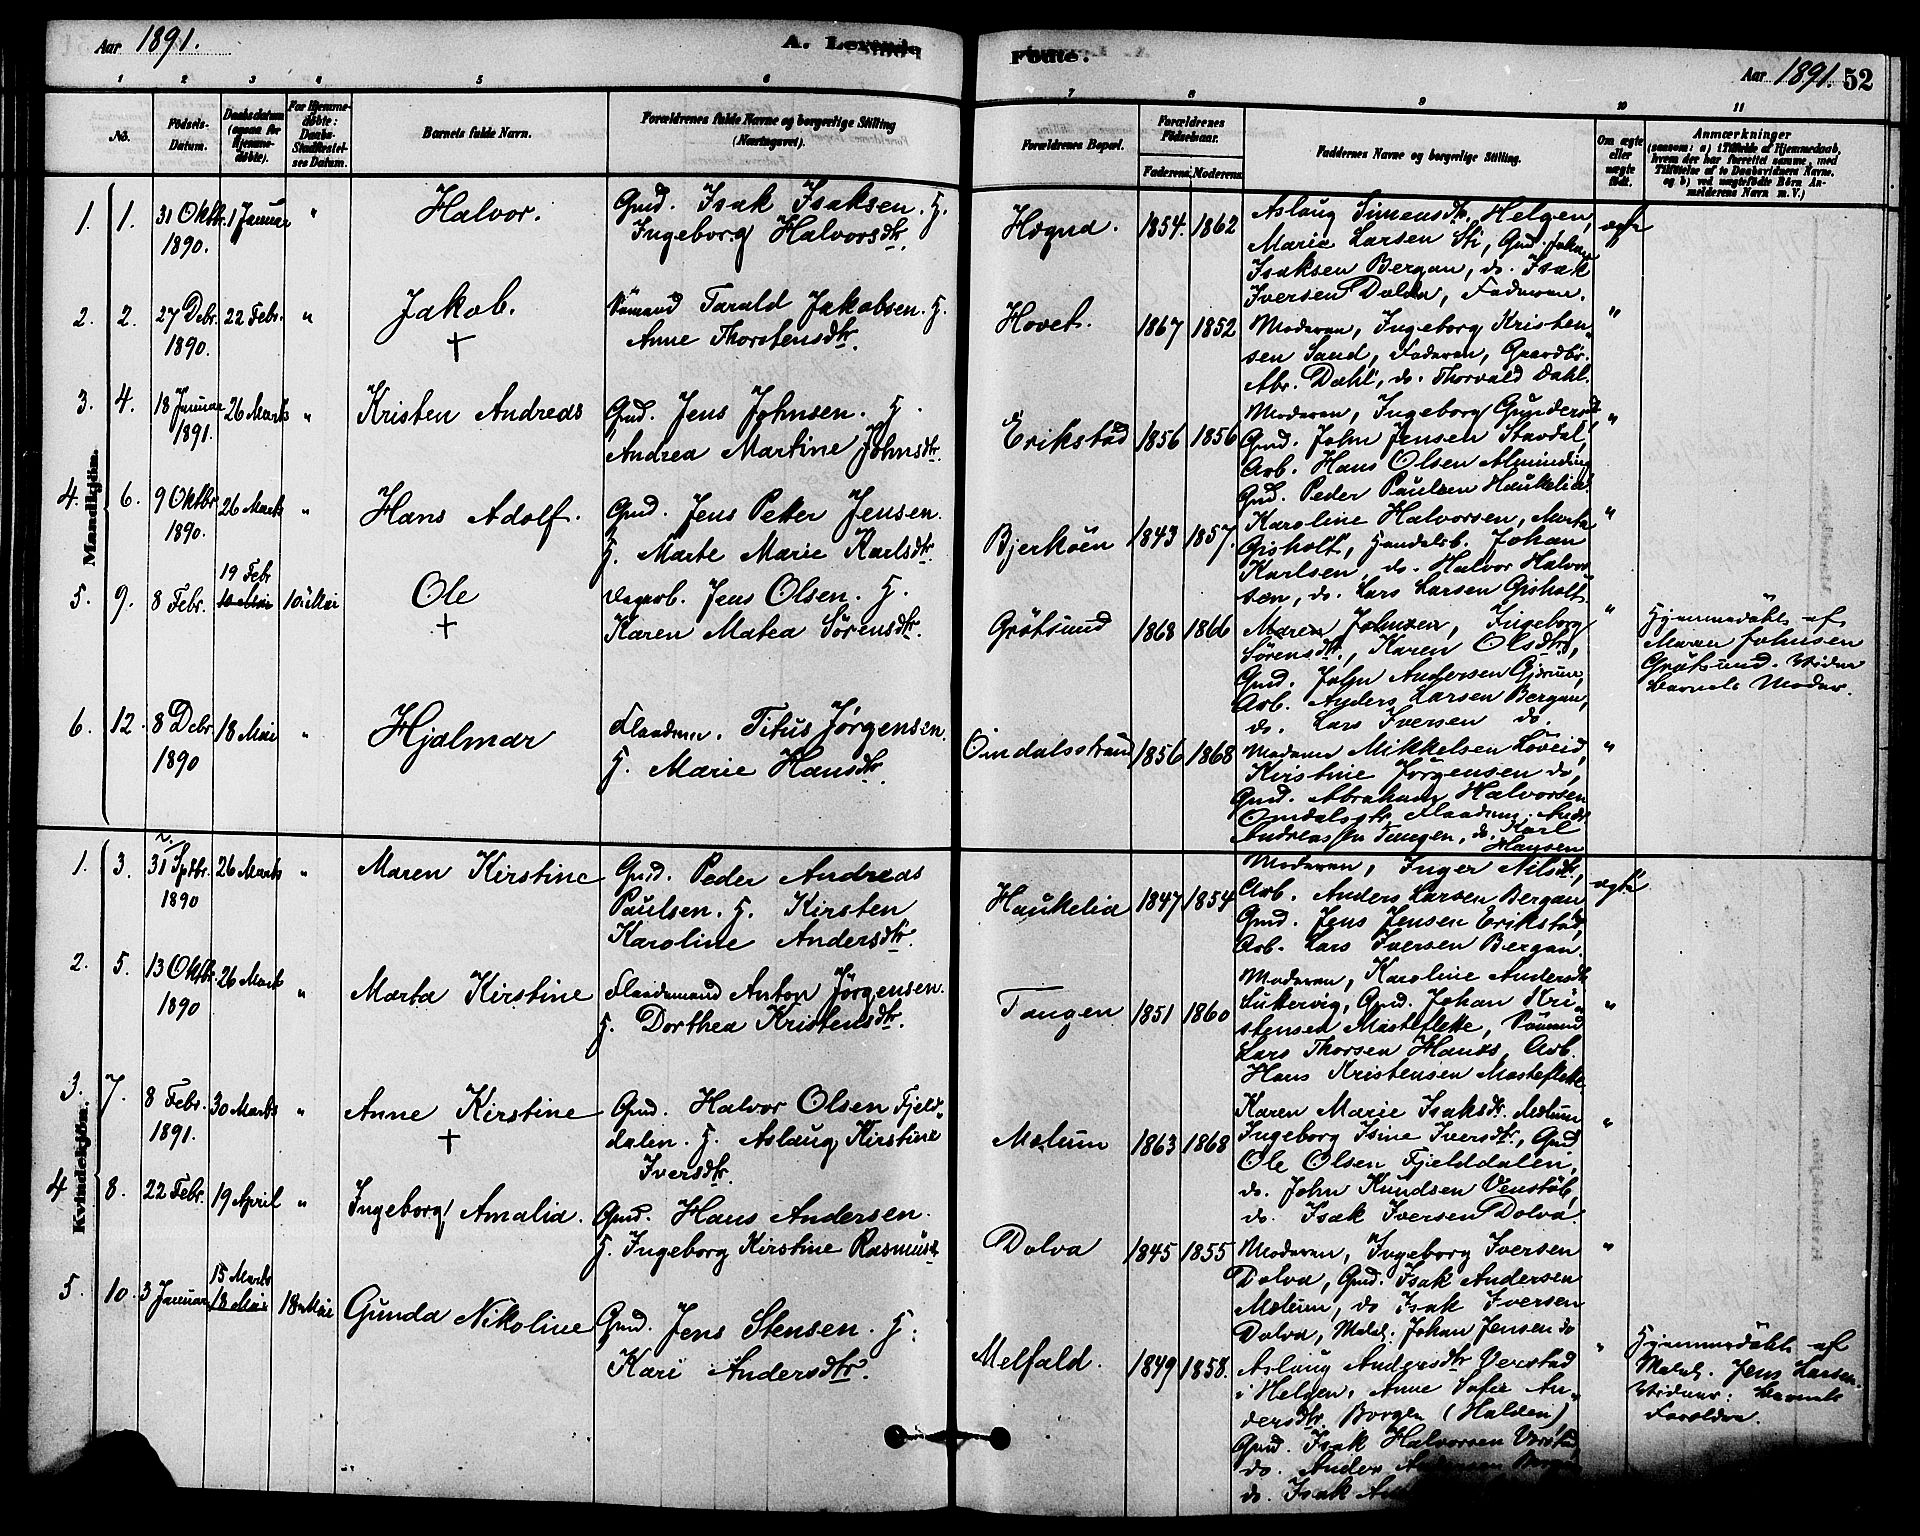 Aar 1891.
A. Levende
Fødte.
Aar 1891. 52
1 2 3 4 5 6
7 8 9 10 11
No.
Fødsels-
Datum.
Daabsdatum
(ogsaa for
Hjemme-
døbte).
For Hjemme-
døbte:
Daabs-
Stadfæstel-
ses Datum.
Barnets fulde Navn.
Forældrenes fulde Navne og borgerlige Stilling
(Næringsvei).
Forældrenes Bopæl.
Forældrenes
Fødselsaar.
Faderens. Moderens.
Faddernes Navne og borgerlige Stilling.
Om ægte
eller
uægte
født.
Anmærkninger
(saasom: a) i Tilfælde af Hjemmedaab,
hvem der har forrettet samme, med
Tilføielse af to Daabsvidners Navne.
og b) ved uægtefødte Børn An-
melderens Navn m. V.)
Mandkjøn.
1. 1. 31 Oktbr. 1 Januar " Halvor. Gmd. Isak Isaksen. H.
1890. Ingeborg Halvorsdtr.
Høgna. 1854. 1862 ægte
Aslaug Simensdtr. Helgen,
Marie Larsen Sti, Gmd. Johan
Isaksen Bergan, do. Isak
Iversen Dolva, Faderen.
2. 2. 27 Debr. 22 Febr. " Jakob. Sømand Tarald Jakobsen. H.
1890. + Anne Thorstensdtr.
Hovet. 1867 1852 "
Moderen, Ingeborg Kristen-
sen Sand, Faderen, Gaardbr.
Abr. Dahl, do. Thorvald Dahl.
3. 4. 18 Januar 26 Marts " Kristen Andreas Gmd. Jens Johnsen. H.
1891. Andrea Martine Johnsdtr.
Erikstad 1856 1856 "
Moderen, Ingeborg Gundersdtr
Gmd. John Jensen Stavdal,
Arb. Hans Olsen Alminding
Gmd. Peder Paulsen Haukelia.
4. 6. 9 Oktbr. 26 Marts " Hans Adolf. Gmd. Jens Petter Jensen.
1890. H. Marte Marie Karlsdtr.
Bjerköen 1843 1857. "
Karoline Halvorsen, Marta
Gisholt, Handelsb. Johan
Karlsen, do. Halvor Halvor
sen, do. Lars Larsen Gisholt.
5. 9. 8 Febr. 19 Febr 10 Mai 10. Mai Ole Dagarb. Jens Olsen. H.
+ Karen Matea Sörensdtr.
Grötsund 1868 1866 "
Maren Johnsen, Ingeborg
Sörensdtr., Karen Olsdtr,
Gmd. John Andersen Gjerum,
Arb. Anders Larsen Bergan,
do. Lars Iversen do.
Hjemmedöbt af
Maren Johnsen
Grötsund. Vidner
barnets Moder.
6. 12. 8 Debr. 18 Mai " Hjalmar Flaadem. Titus Jørgensen.
1890 H. Marie Hansdtr.
Omdalsstrand 1856 1868 "
Moderen Mikkelsen Löveid,
Kirstine Jörgensen do,
Gmd. Abraham Halvorsen
Omdalsstr. Flaadem. Ands
Andreassen Tangen, do. Karl
Hansen
Kvindekjøn.
1. 3. 31 Sptbr. 26 Marts " Maren Kirstine Gmd. Peder Andreas
1890 Paulsen. H. Kirsten
Karoline Andersdtr.
Haukelia 1847 1854 ægte
Moderen, Inger Nilsdtr,
Arb. Anders Larsen Bergan
Gmd. Jens Jensen Erikstad,
Arb. Lars Iversen Bergan.
2. 5. 13 Oktbr. 26 Marts " Marta Kirstine Flaademand Anton Jörgensen.
1890 H. Dorthea Kristensdtr.
Tangen 1851 1860 "
Moderen, Karoline Andersdtr
Lukervig, Gmd. Johan Kri-
stensen Masteflette, Sömand
Lars Thorsen Haukås, Arb.
Hans Kristensen Masteflette
3. 7. 8 Febr. 30 Marts " Anne Kirstine Gmd. Halvor Olsen Fjeld-
1891. + dalen. H. Aslaug Kirstine
Iversdtr.
Mælum 1863 1868 "
Karen Marie Isaksdtr. Mælum
Ingeborg Isine Iversdtr, Gmd
Ole Olsen Fjelddalen,
do. John Knudsen Venstöb,
do. Isak Iversen Dolva.
4 8. 22 Febr. 19 April " Ingeborg Amalia. Gmd. Hans Andersen.
H. Ingeborg Kirstine Rasmusd
Dolva 1845 1855 "
Moderen, Ingeborg Iversen
Dolva, Gmd. Isak Andersen
Mælum, do Isak Iversen
Dolva, Matr. Johan Jensen do
5. 10. 3 Januar 15 Marts 18 Mai 18 Mai Gunda Nikoline Gmd. Jens Stensen. H.
Kari Andersdtr.
Melfald. 1849 1858. "
Aslaug Andersdtr Verstad
i Helgen, Anne Sofie An-
dersdtr. Borgen (Halden),
Gmd. Isak Halvorsen Verstad
do. Anders Andersen
do. Isak
Hjemmedöbt af
Jens Larsen.
Vidner: Barnets
Foreldre.